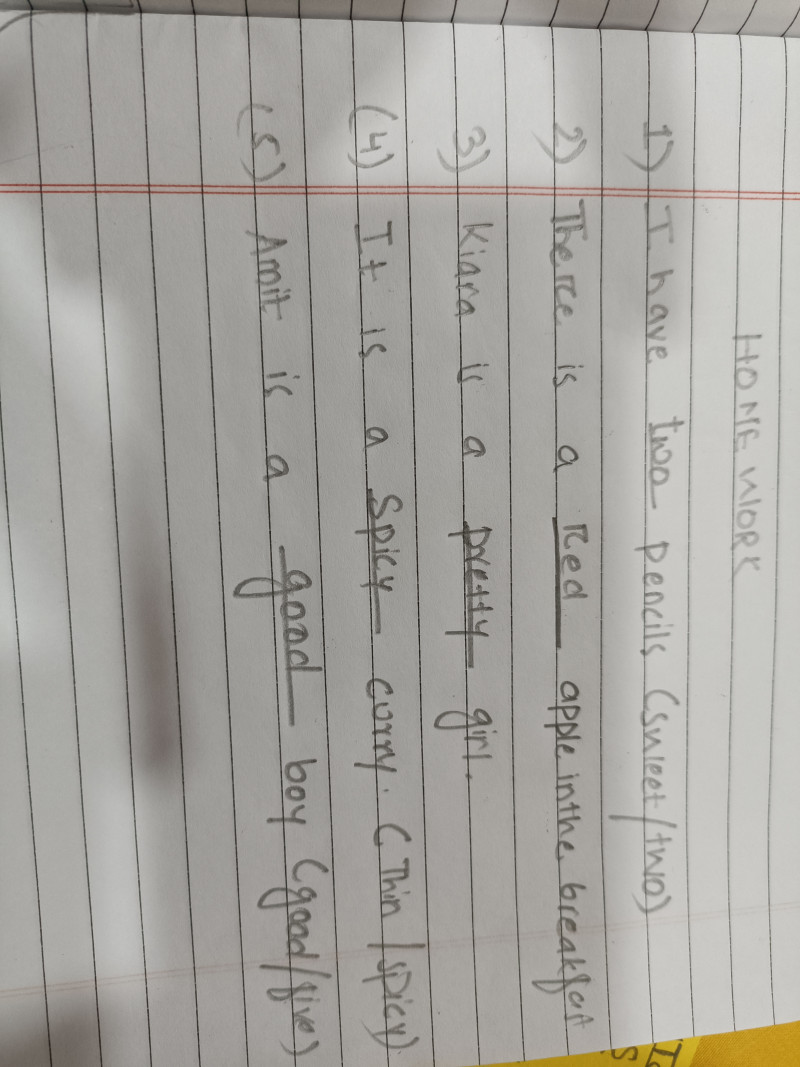 HOME WORK
1) I have two pencils (sweet/two)
2) There is a Red apple in the breakfast
3) Kiara is a pretty girl.
(4) It is a Spicy curry. (Thin/spicy)
(5) Amit is a good boy (good/five)